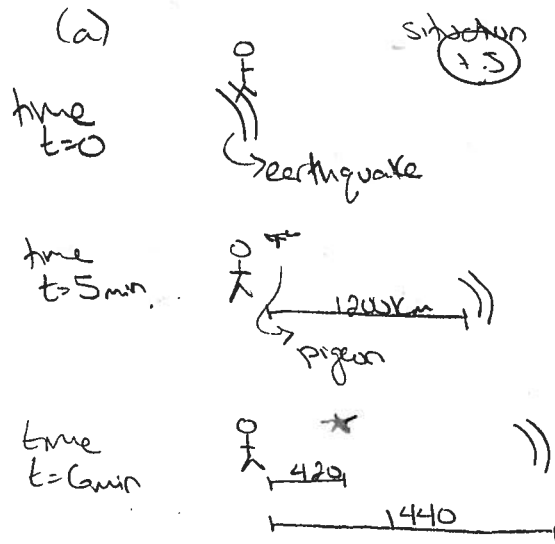 (a)
situation
+.5
time
t=0
earthquake
time
t=5min.
1200Km
pigeon
time
t=6min
420
1440